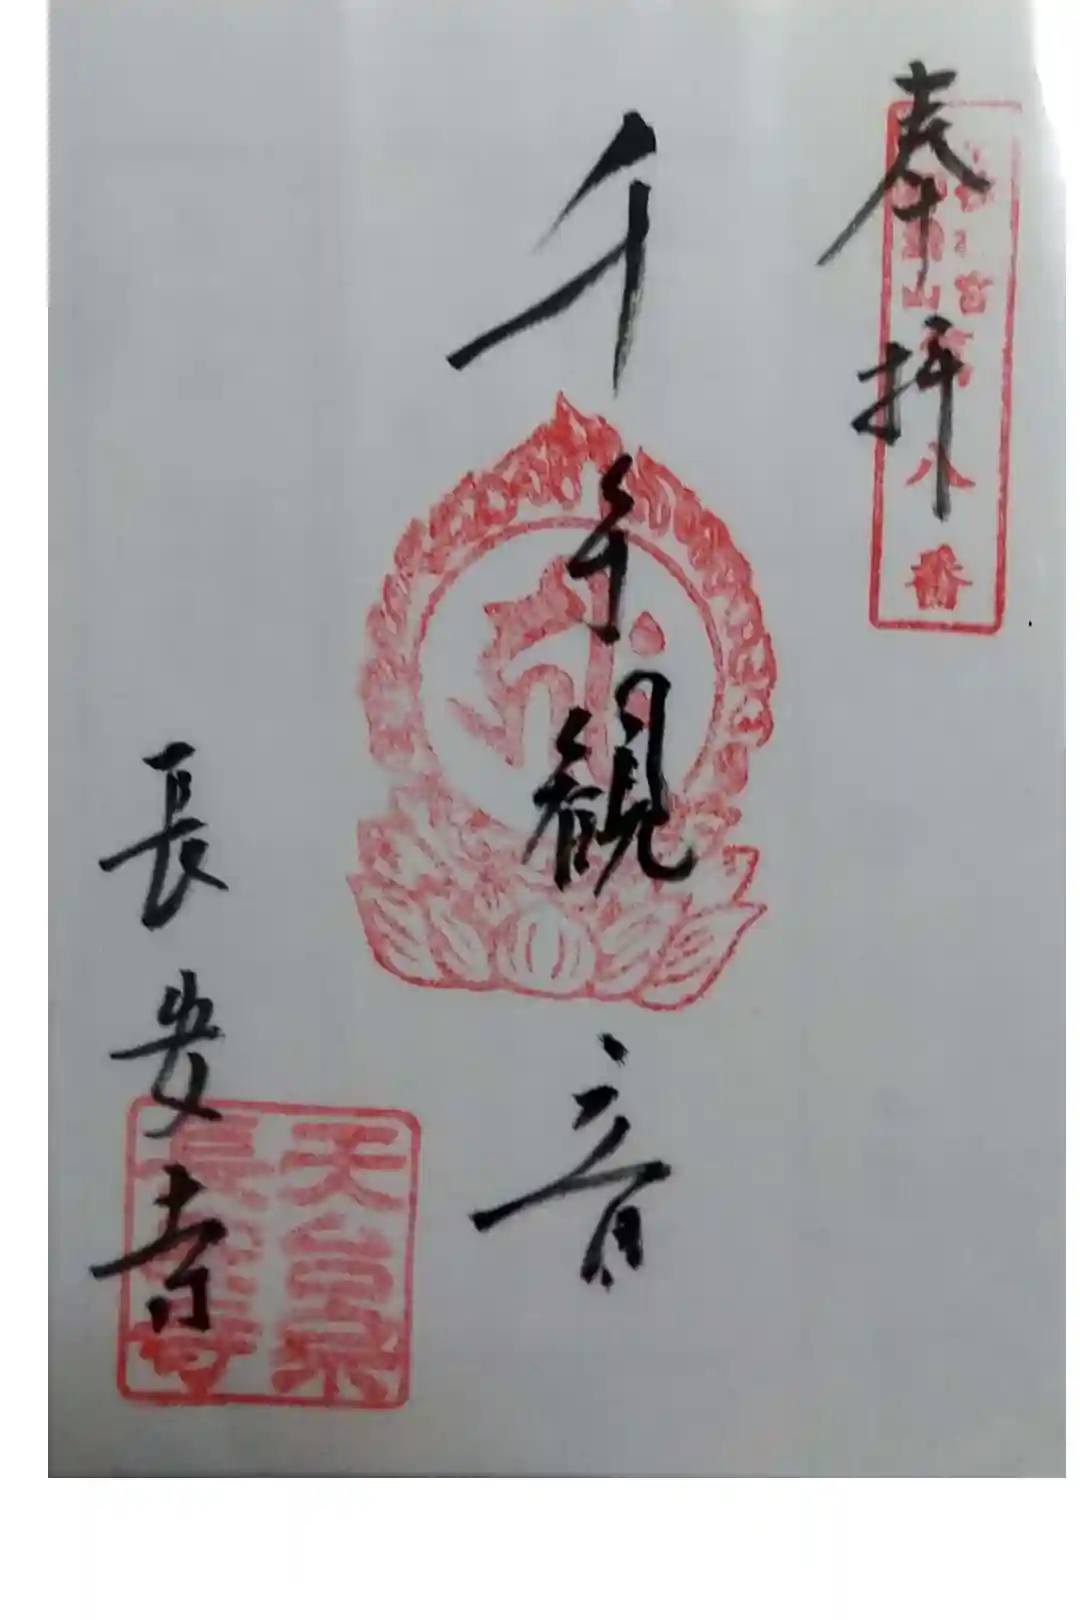 奉拝
八番
千手観音
長安寺
天台宗
長安寺